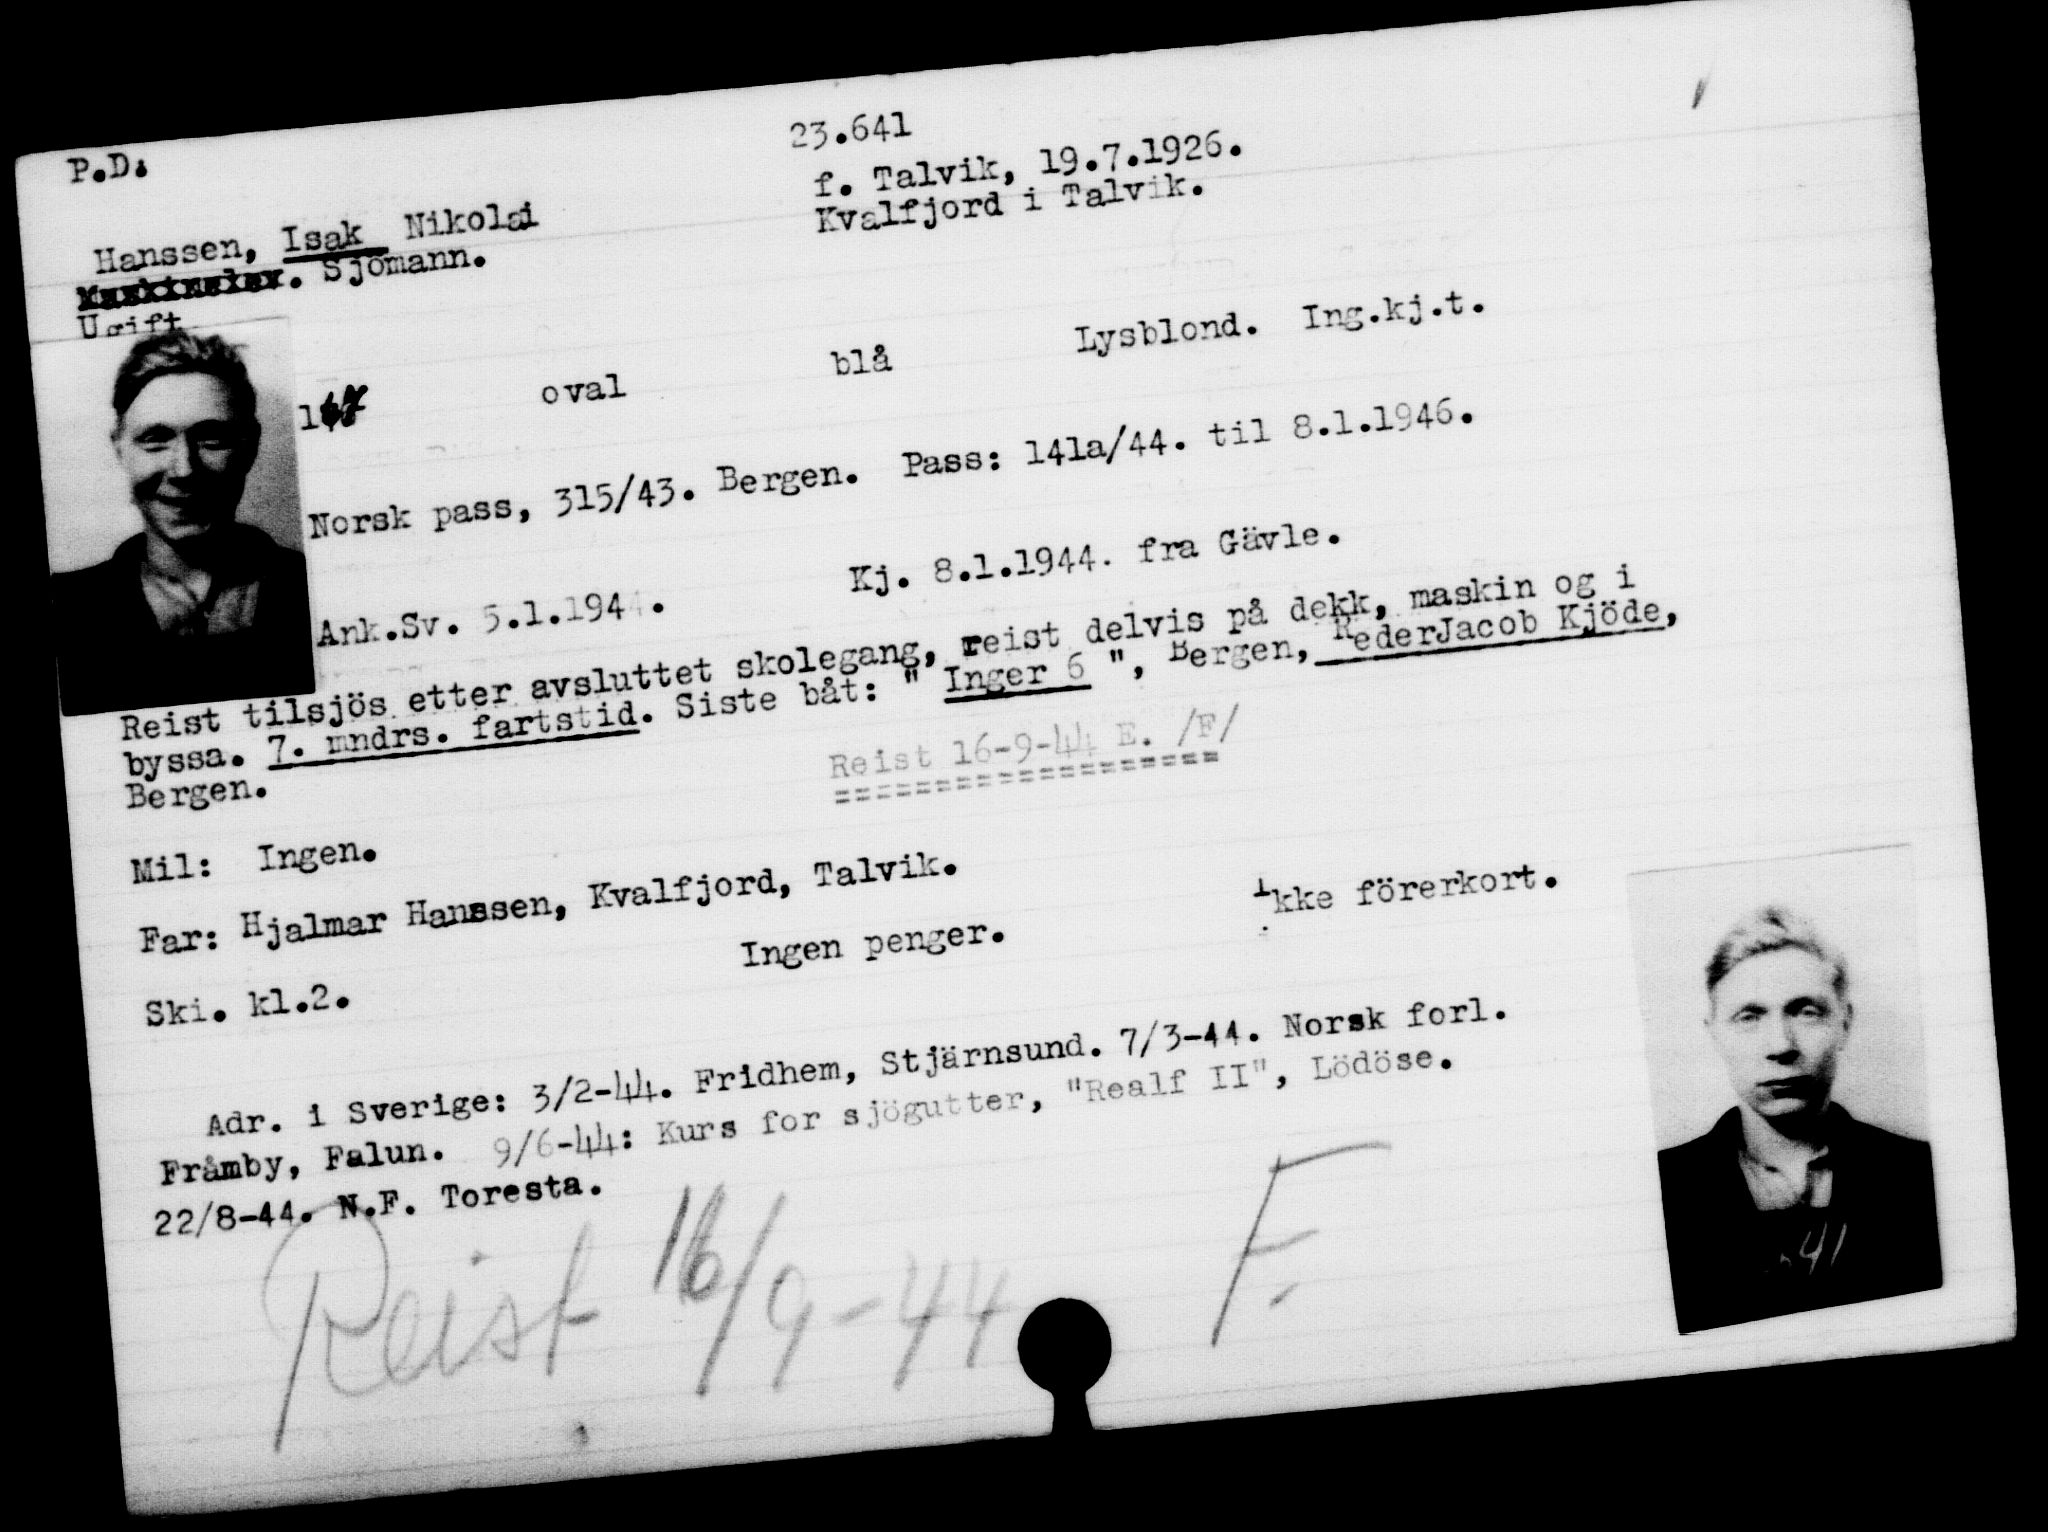 P.D.
23.641
f. Talvik, 19.7.1926.
Kvalfjord i Talvik.
Hanssen, Isak Nikolai
Sjömann.
Ugift
oval blå Lysblond. Ing.kj.t.
Norsk pass, 315/43. Bergen. Pass: 141a/44. til 8.1.1946.
Ank.Sv. 5.1.1944. Kj. 8.1.1944. fra Gävle.
Reist tilsjös etter avsluttet skolegang, reist delvis på dekk, maskin og i
byssa. 7. mndrs. fartstid. Siste båt: " Inger 6 ", Bergen, RederJacob Kjöde,
Bergen.
Reist 16-9-44 E. /F/
===================
Mil: Ingen.
Far: Hjalmar Hanssen, Kvalfjord, Talvik.
Ikke förerkort.
Ingen penger.
Ski. kl.2.
Adr. i Sverige: 3/2-44. Fridhem, Stjärnsund. 7/3-44. Norsk forl.
Främby, Falun. 9/6-44: Kurs for sjögutter, "Realf II", Lödöse.
22/8-44. N.F. Toresta.
Reist 16/9-44 F.
41